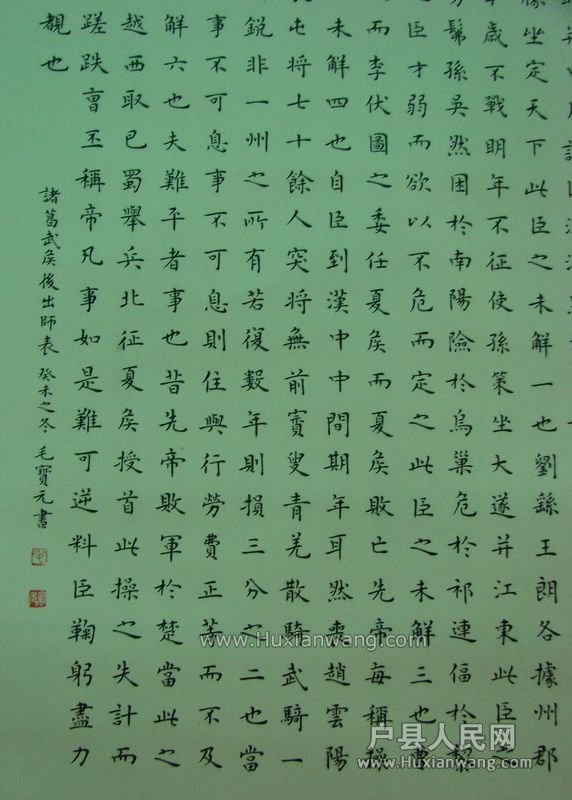 勝坐定天下此臣之未解一也劉繇王朗各據州郡
年歲不戰明年不征使孫策坐大遂并江東此臣之
髴孫吳然困於南陽險於烏巢危於祁連偪於黎
之臣才弱而欲以不危而定之此臣之未解三也曹
而李伏圖之委任夏侯而夏侯敗亡先帝每稱操
未解四也自臣到漢中中間期年耳然喪趙雲陽
屯將七十餘人突將無前賨叟青羌散騎武騎一
銳非一州之所有若復數年則損三分之二也當
事不可息事不可息則住與行勞費正等而不及
解六也夫難平者事也昔先帝敗軍於楚當此之
越西取巴蜀舉兵北征夏侯授首此操之失計而
蹉跌曹丕稱帝凡事如是難可逆料臣鞠躬盡力
覩也
諸葛武侯後出師表 癸未之冬 毛寶元書
www.Huxianwang.com
户县人民网
www.Huxianwang.com